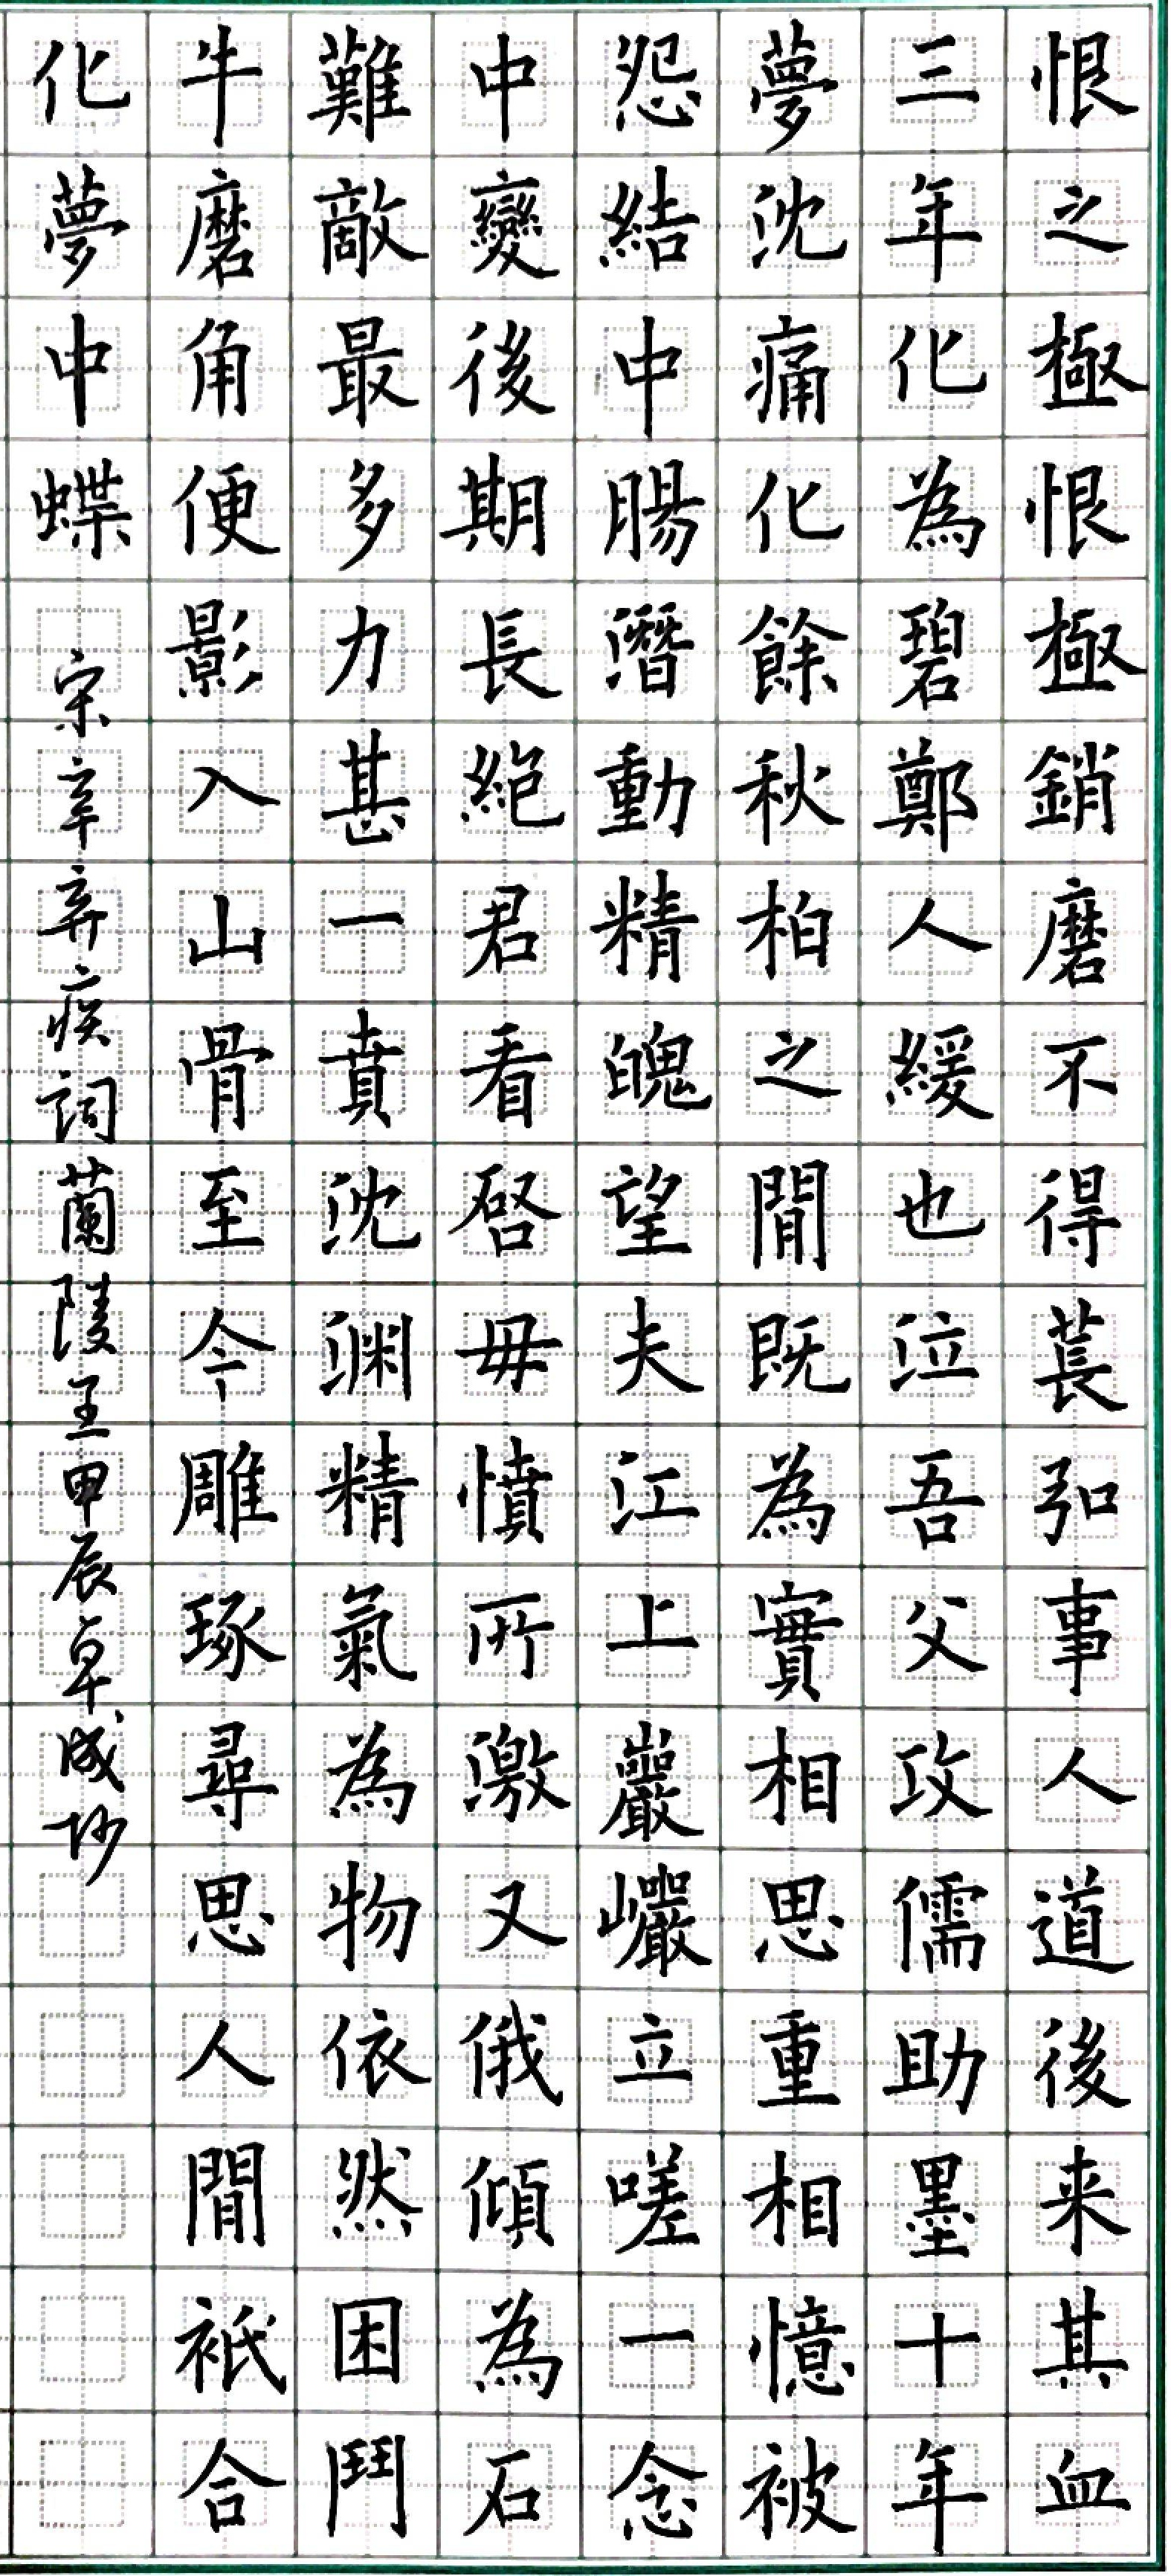 恨之極恨極銷磨不得萇弘事人道後来其血
三年化為碧鄭人緩也泣吾父攻儒助墨十年
夢沈痛化餘秋柏之間既為實相思重相憶被
怨結中腸潛動精魄望夫江上巖巖立嗟一念
中變後期長絕君看啓毋憤所激又俄傾為石
難敵最多力甚一賁沈渊精氣為物依然困鬥
牛磨角便影入山骨至今雕琢尋思人間衹合
化夢中蝶
宋辛弃疾詞蘭陵王甲辰卓成抄